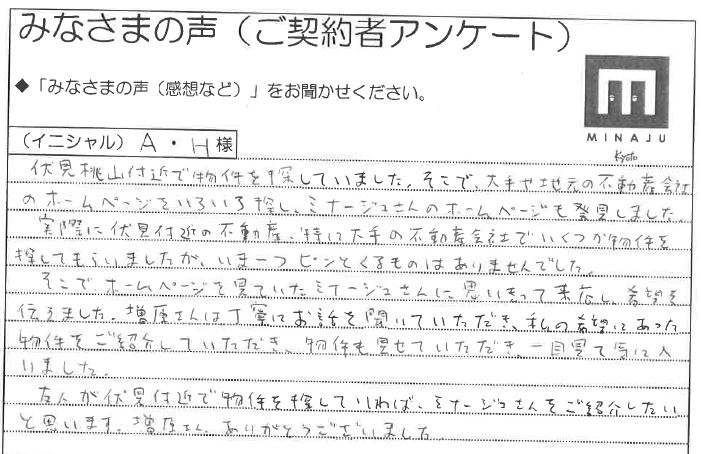 みなさまの声（ご契約者アンケート）
◆「みなさまの声（感想など）」をお聞かせください。
MINAJU
Kyoto
（イニシャル）A・H様
伏見桃山付近で物件を探していました。そこで、大手や地元の不動産会社
のホームページをいろいろ探し、ミナージュさんのホームページも発見しました。
実際に伏見付近の不動産、特に大手の不動産会社でいくつか物件を
探してもらいましたが、いま一つピンとくるものはありませんでした。
そこでホームページを見ていたミナージュさんに思いきって来店し、希望を
伝えました。増原さんは丁寧にお話を聞いていただき、私の希望にあった
物件をご紹介していただき、物件も見せていただき、一目見て気に入
いました。
友人が伏見付近で物件を探していれば、ミナージュさんをご紹介したい
と思います。増原さん、ありがとうございました。